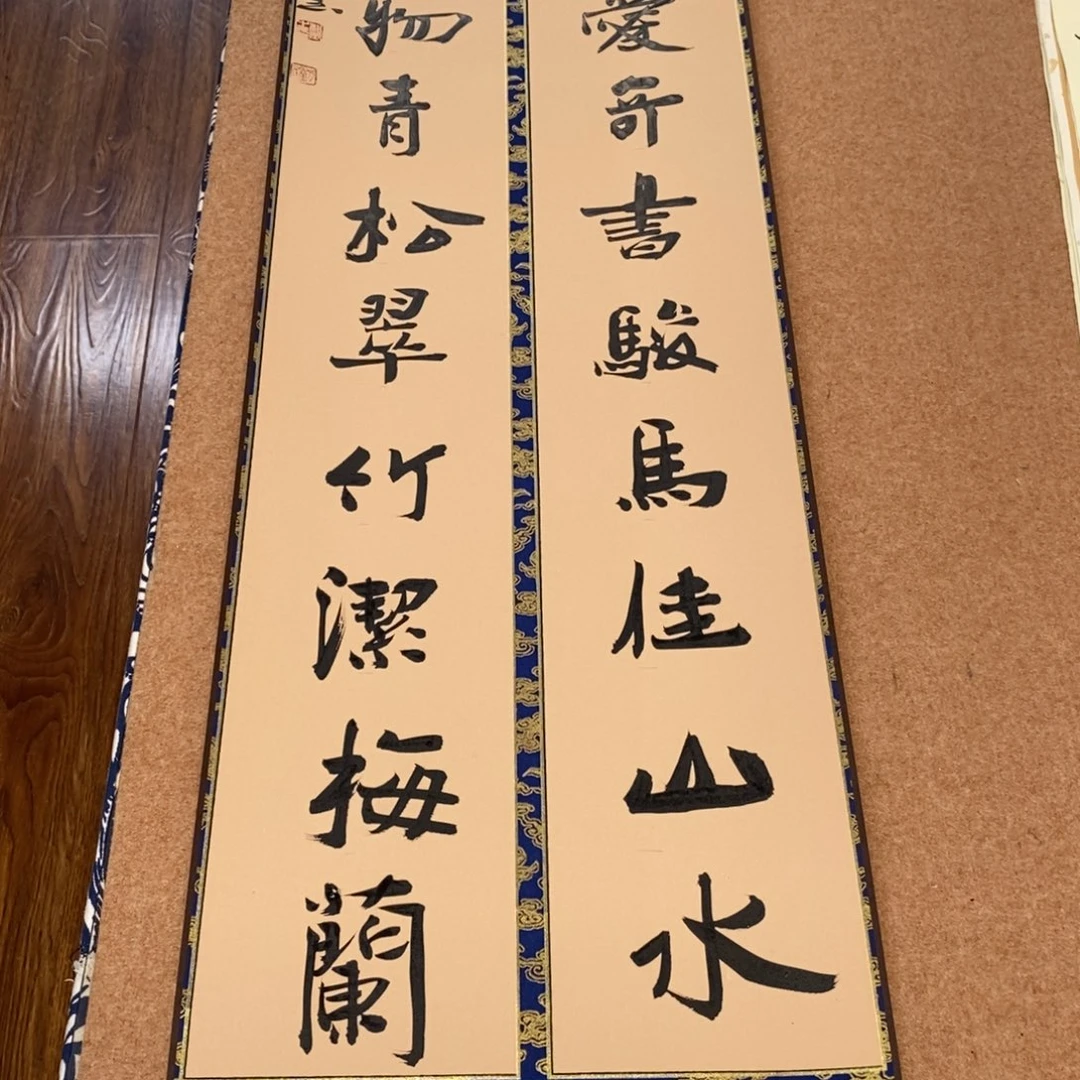 愛奇書駿馬佳山水
物青松翠竹潔梅蘭